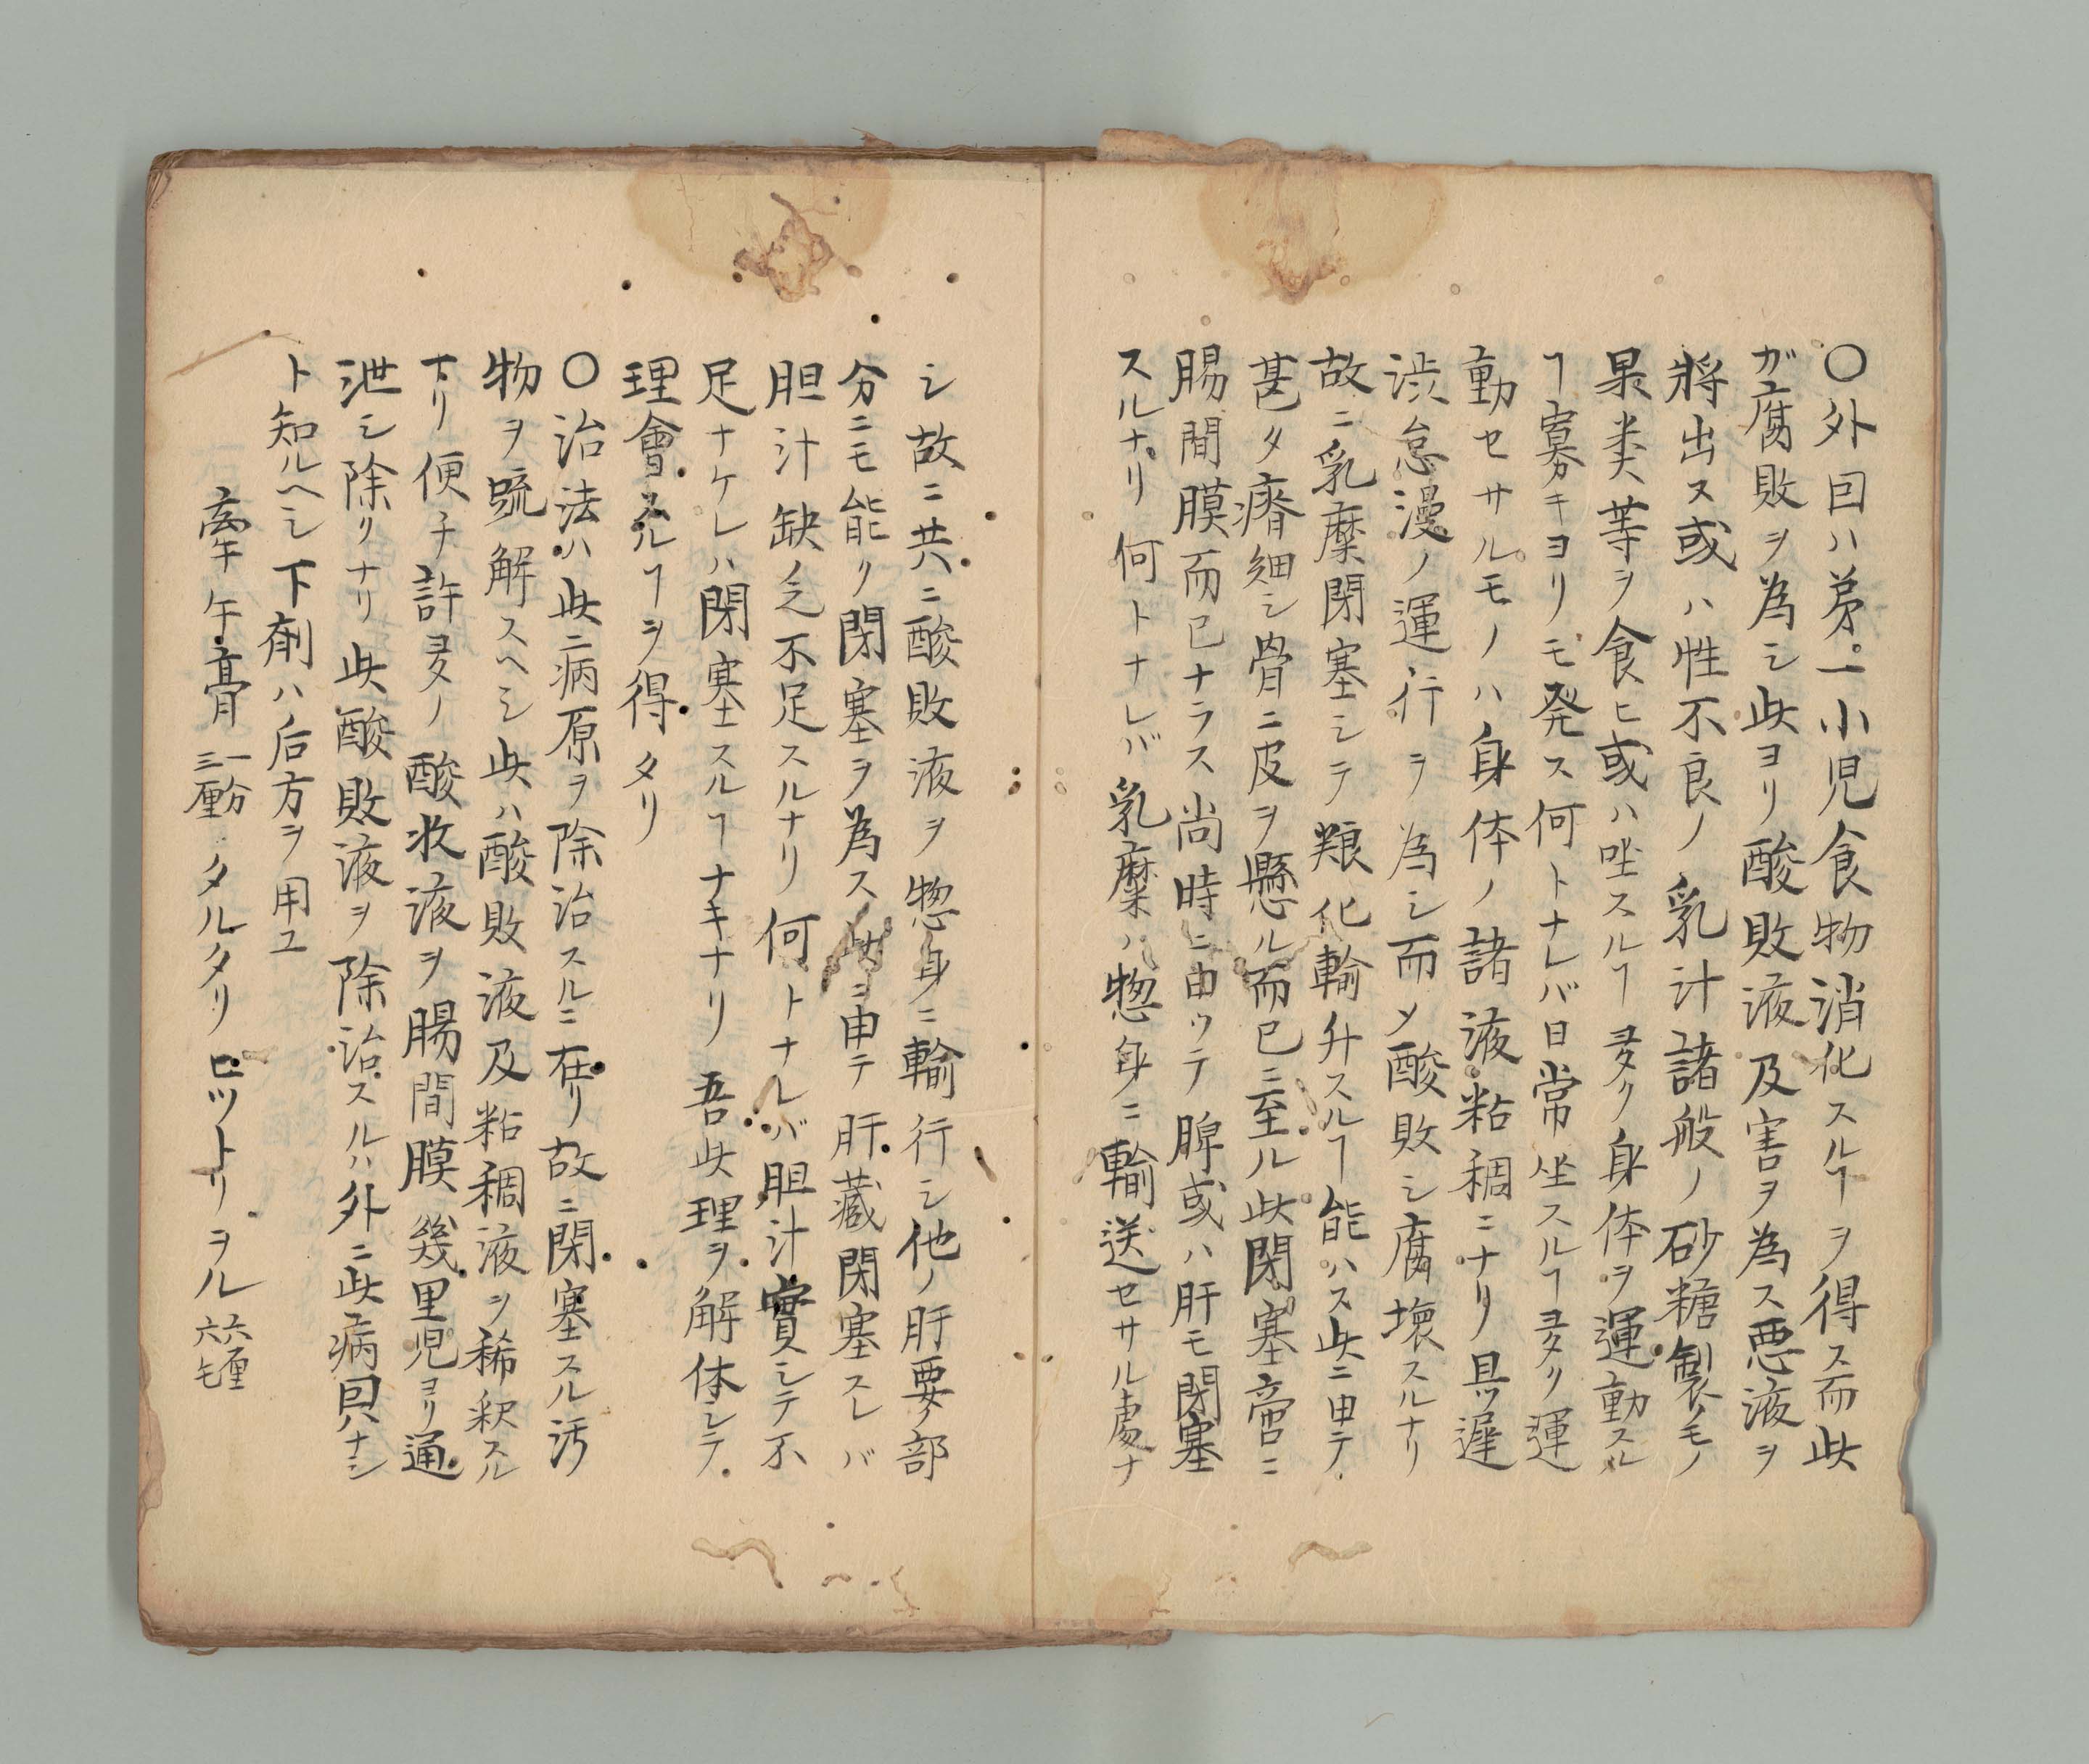 〇外因ハ第一小児食物消化スルヿヲ得ス而此
ガ腐敗ヲ為シ此ヨリ酸敗液及害ヲ為ス悪液ヲ
将出ス或ハ性不良ノ乳汁諸般ノ砂糖製ノモノ
果类等ヲ食ヒ或ハ唑スルヿ多ク身体ヲ運動スル
ヿ寡キヨリモ発ス何トナレバ日常坐スルヿ多ク運
動セサルモノハ身体ノ諸液粘稠ニナリ且ツ遅
渋怠漫ノ運行ヲ為シ而メ酸敗シ腐壊スルナリ
故ニ乳糜閉塞シテ粮化輸升スルヿ能ハス此ニ由テ
甚タ瘠細シ骨ニ皮ヲ懸ル而已ニ至ル此閉塞啻ニ
腸間膜而已ナラス尚時ニ由ツテ脾或ハ肝モ閉塞
スルナリ何トナレバ乳糜ハ惣身ニ輸送セサル處ナ
シ故ニ共ニ酸敗液ヲ惣身ニ輸行シ他ノ肝要ノ部
分ニモ能ク閉塞ヲ為ス此ニ由テ肝蔵閉塞スレバ
胆汁缺乏不足スルナリ何トナレバ胆汁實シテ不
足ナケレハ閉塞スルヿナキナリ吾此理ヲ解体シテ
理會スルヿヲ得タリ
〇治法ハ此ニ病原ヲ除治スルニ在リ故ニ閉塞スル汚
物ヲ疏解スヘシ此ハ酸敗液及粘稠液ヲ稀釈スル
下リ便チ許多ノ酸敗液ヲ腸間膜幾里児ヨリ通
泄シ除クナリ此酸敗液ヲ除治スルハ外ニ此病因ハナシ
ト知ルヘシ下剤ハ后方ヲ用ユ
牽牛膏 一分三厘 タルタリヒツトリヲル 六厘六毛